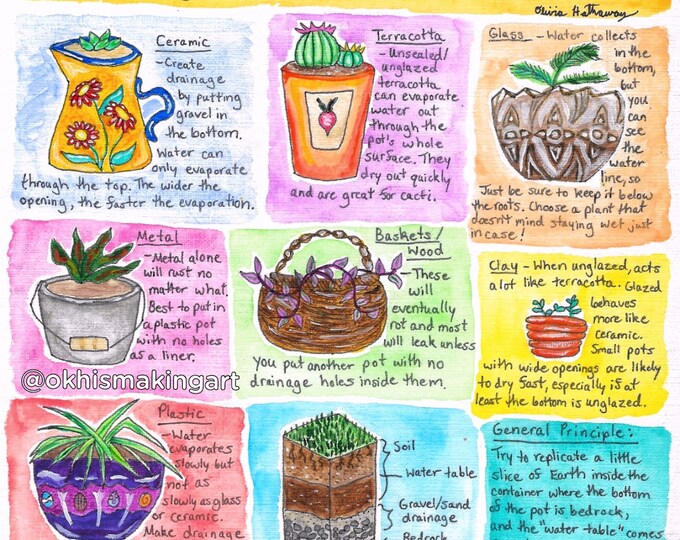 Olivia Hathaway
Ceramic
- Create
drainage
by putting
gravel in
the bottom.
Water can
only evaporate
through the top. The wider the
opening, the faster the evaporation.
Terracotta
- Unsealed/
unglazed
terracotta
can evaporate
water out
through the
pot's whole
surface. They
dry out quickly
and are great for cacti.
Glass - Water collects
in the
bottom,
but
you
can
see
the
water
line, so
Just be sure to keep it below
the roots. Choose a plant that
doesn't mind staying wet just
in case!
Metal
- Metal alone
will rust no
matter what.
Best to put in
a plastic pot
with no holes
as a liner.
@okhismakingart
Baskets/
Wood
- These
will
eventually
rot and most
will leak unless
you put another pot with no
drainage holes inside them.
Clay - When unglazed, acts
a lot like terracotta. Glazed
behaves
more like
ceramic.
Small pots
with wide openings are likely
to dry fast, especially if at
least the bottom is unglazed.
Plastic
- Water
evaporates
slowly but
not as
slowly as glass
or ceramic.
Make drainage
Soil
Water table
Gravel/sand
drainage
Bedrock
General Principle:
Try to replicate a little
slice of Earth inside the
container where the bottom
of the pot is bedrock,
and the "water table" comes